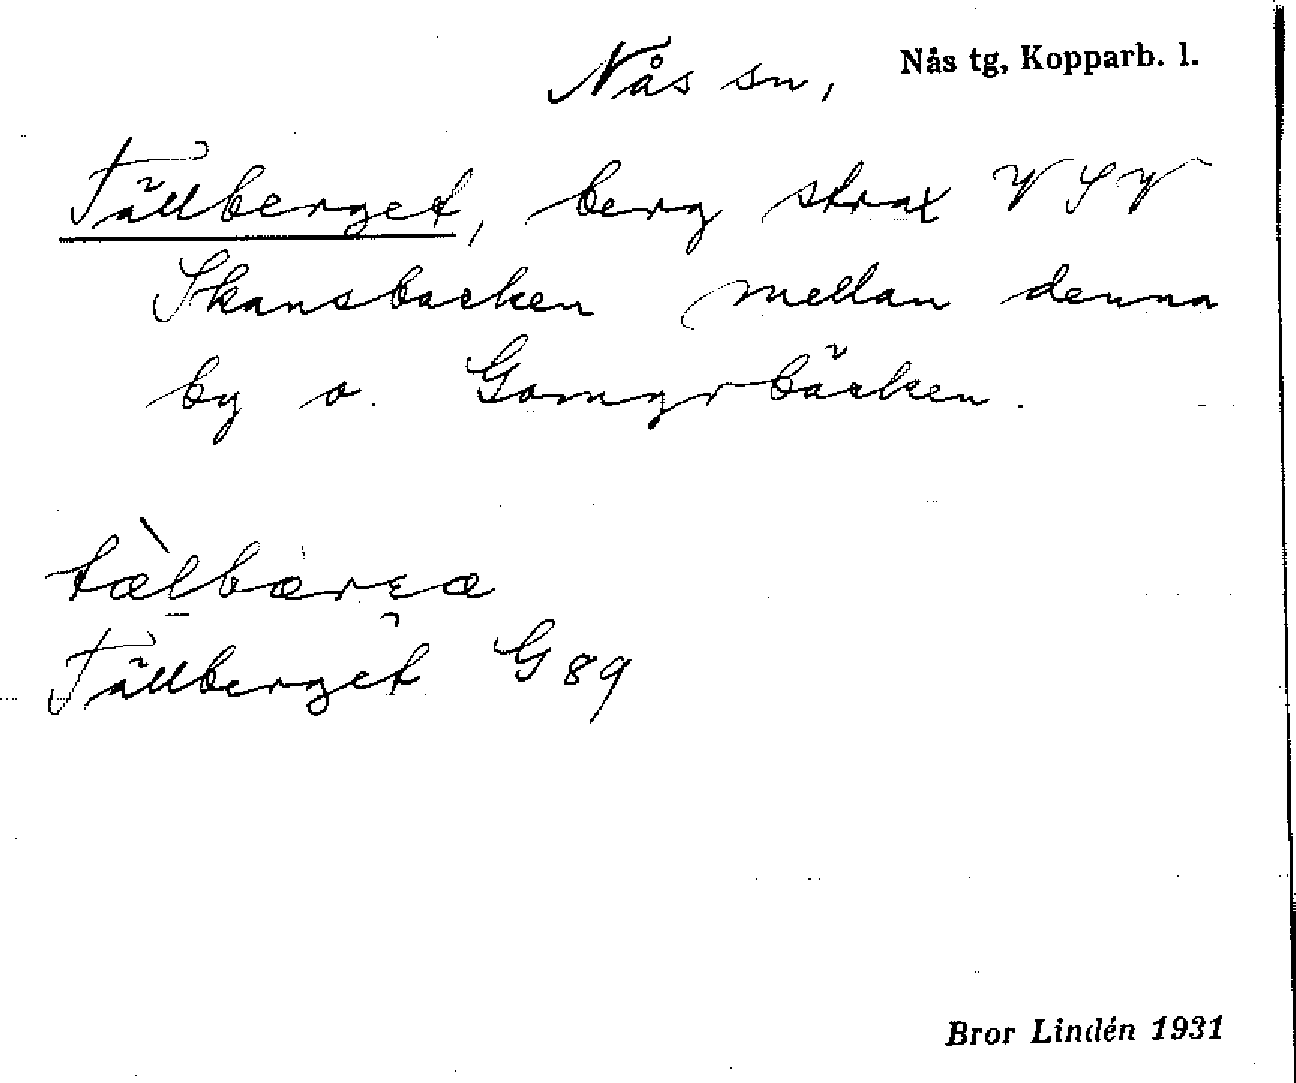 Nås sn, Nås tg, Kopparb. l.
Tällberget, berg strax VSV
Skansbacken mellan denna
by o. Gomyrbäcken.
tælbærɛa
Tällberget G 89
Bror Lindén 1931